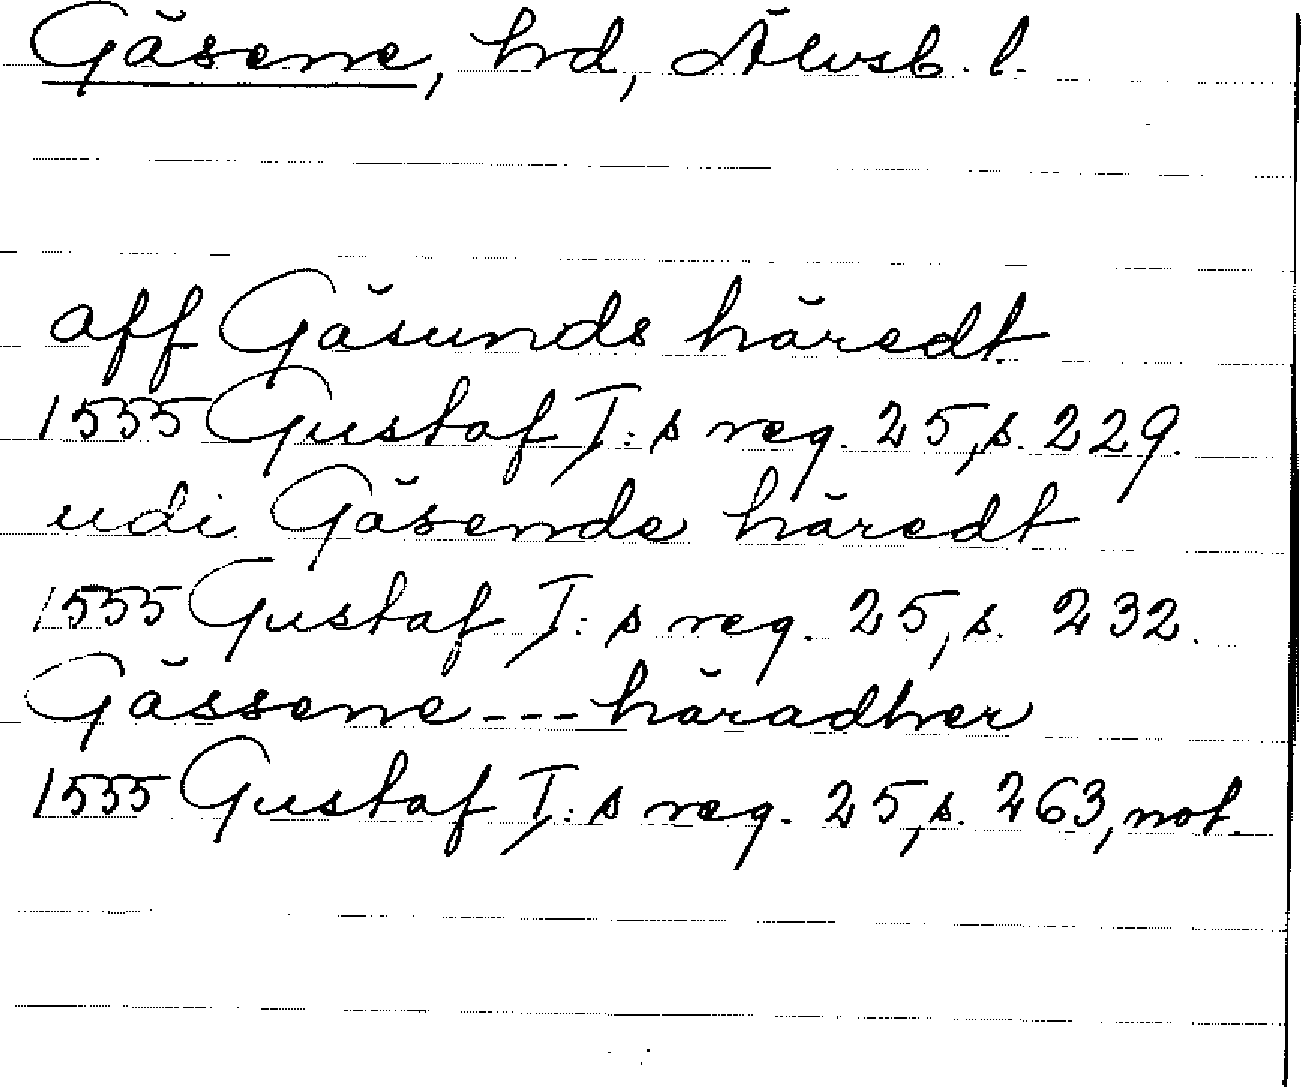 Gäsene, hd, Älvsb. l.
aff Gäsunds häredt
1555 Gustaf I:s reg. 25, s. 229.
udi Gäsende häredt
1555 Gustaf I:s reg. 25, s. 232.
Gässene --- häradher
1555 Gustaf I:s reg. 25, s. 263, not.